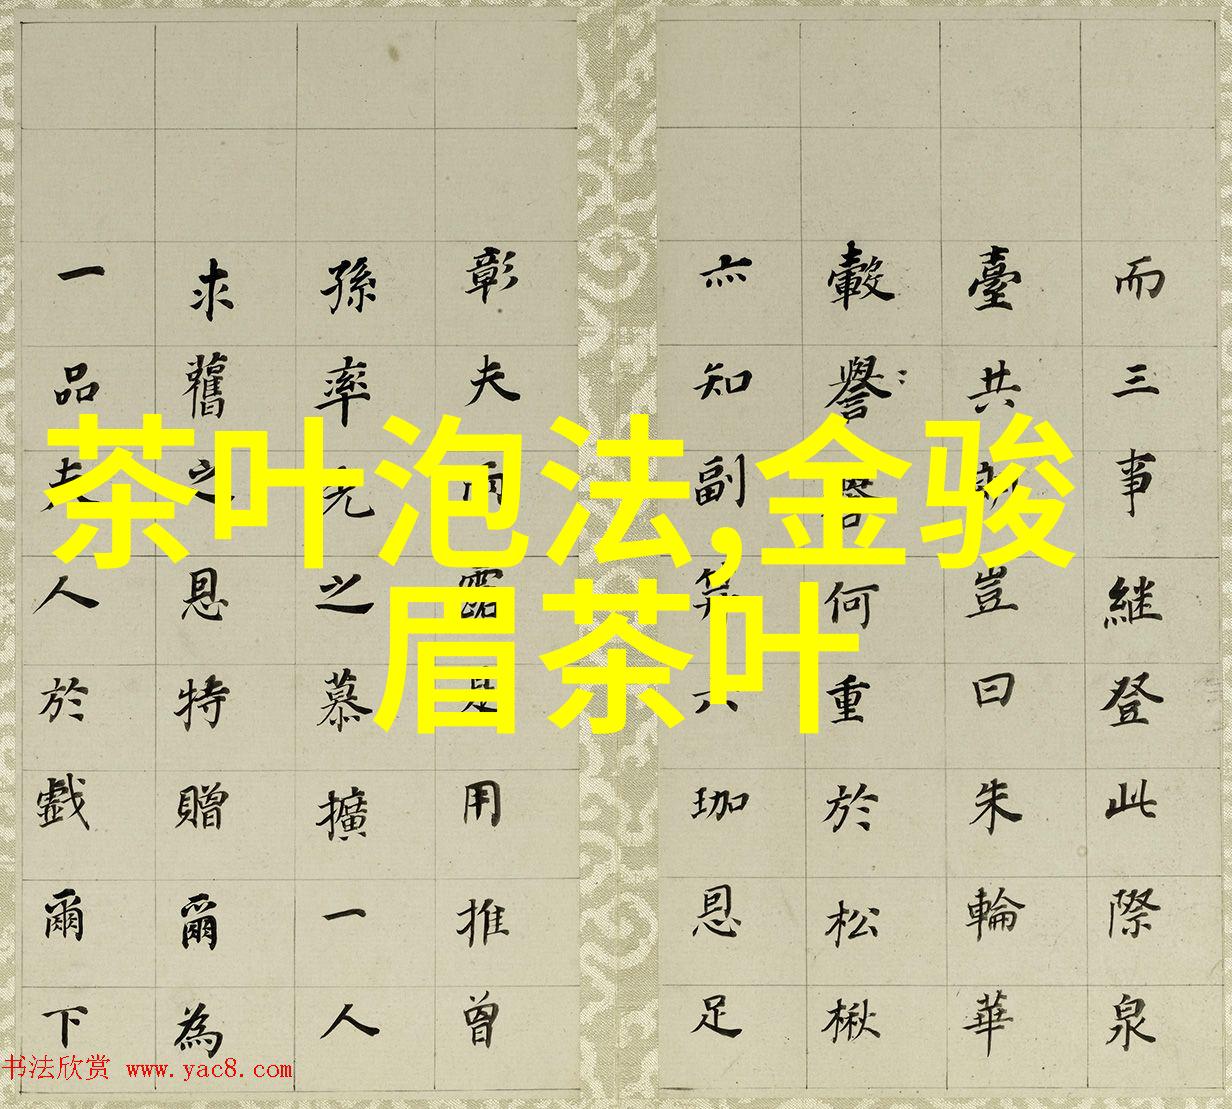 茶叶泡法,金骏
眉茶叶
而三事継登此際泉
臺共豈曰朱輪華
轂譽何重於松楸
亦知副笄六珈恩足
彰夫雨露是用推曾
孫率之慕擴一人
求舊之恩特贈爾為
一品夫人於戲爾下
书法欣赏 www.yac8.com